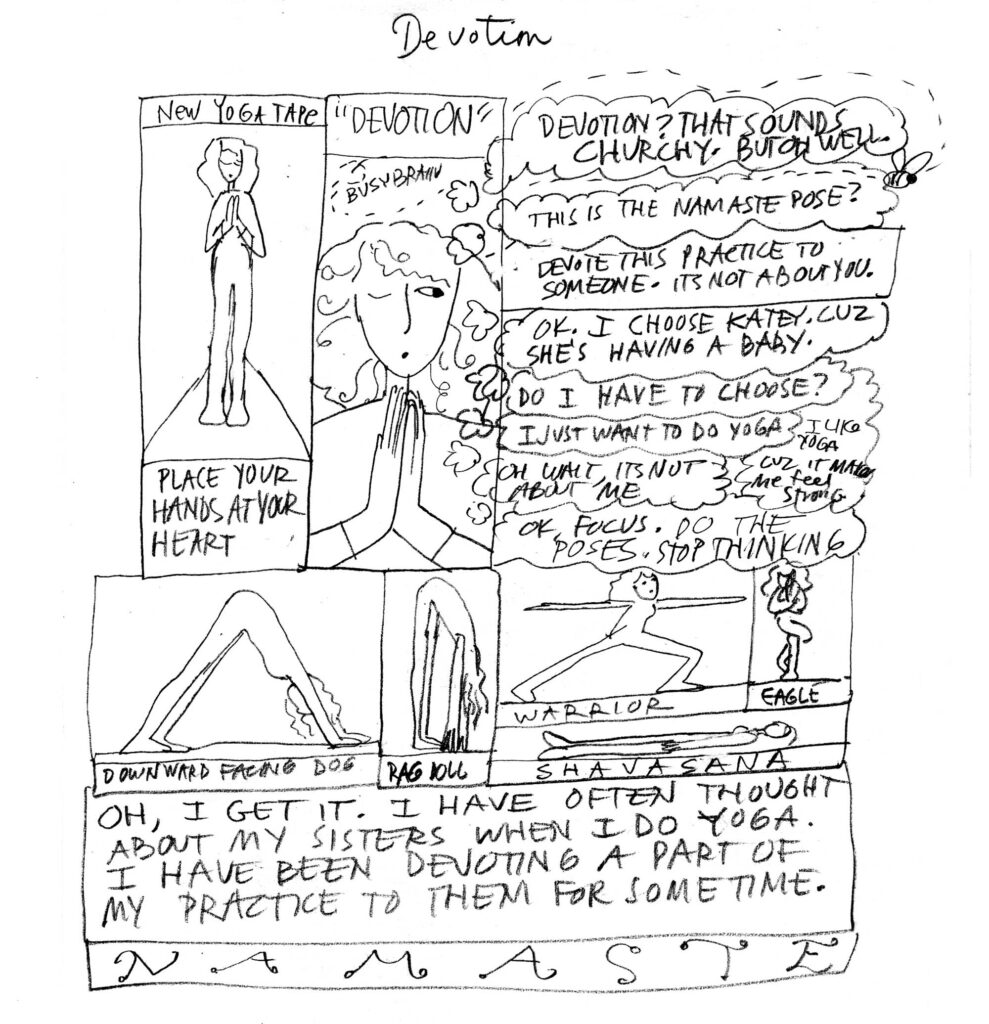 Devotion
NEW YOGA TAPE
PLACE YOUR
HANDS AT YOUR
HEART
"DEVOTION"
BUSY BRAIN
DEVOTION? THAT SOUNDS
CHURCHY. BUT OH WELL.
THIS IS THE NAMASTE POSE?
DEVOTE THIS PRACTICE TO
SOMEONE. ITS NOT ABOUT YOU.
OK. I CHOOSE KATEY. CUZ
SHE'S HAVING A BABY.
DO I HAVE TO CHOOSE?
I JUST WANT TO DO YOGA
I LIKE
YOGA
CUZ IT MAKES
Me feel
STRONG
OH WAIT, ITS NOT
ABOUT ME
OK, FOCUS. DO THE
POSES. STOP THINKING
DOWNWARD FACING DOG
RAG DOLL
WARRIOR
EAGLE
SHAVASANA
OH, I GET IT. I HAVE OFTEN THOUGHT
ABOUT MY SISTERS WHEN I DO YOGA.
I HAVE BEEN DEVOTING A PART OF
MY PRACTICE TO THEM FOR SOME TIME.
NAMASTE